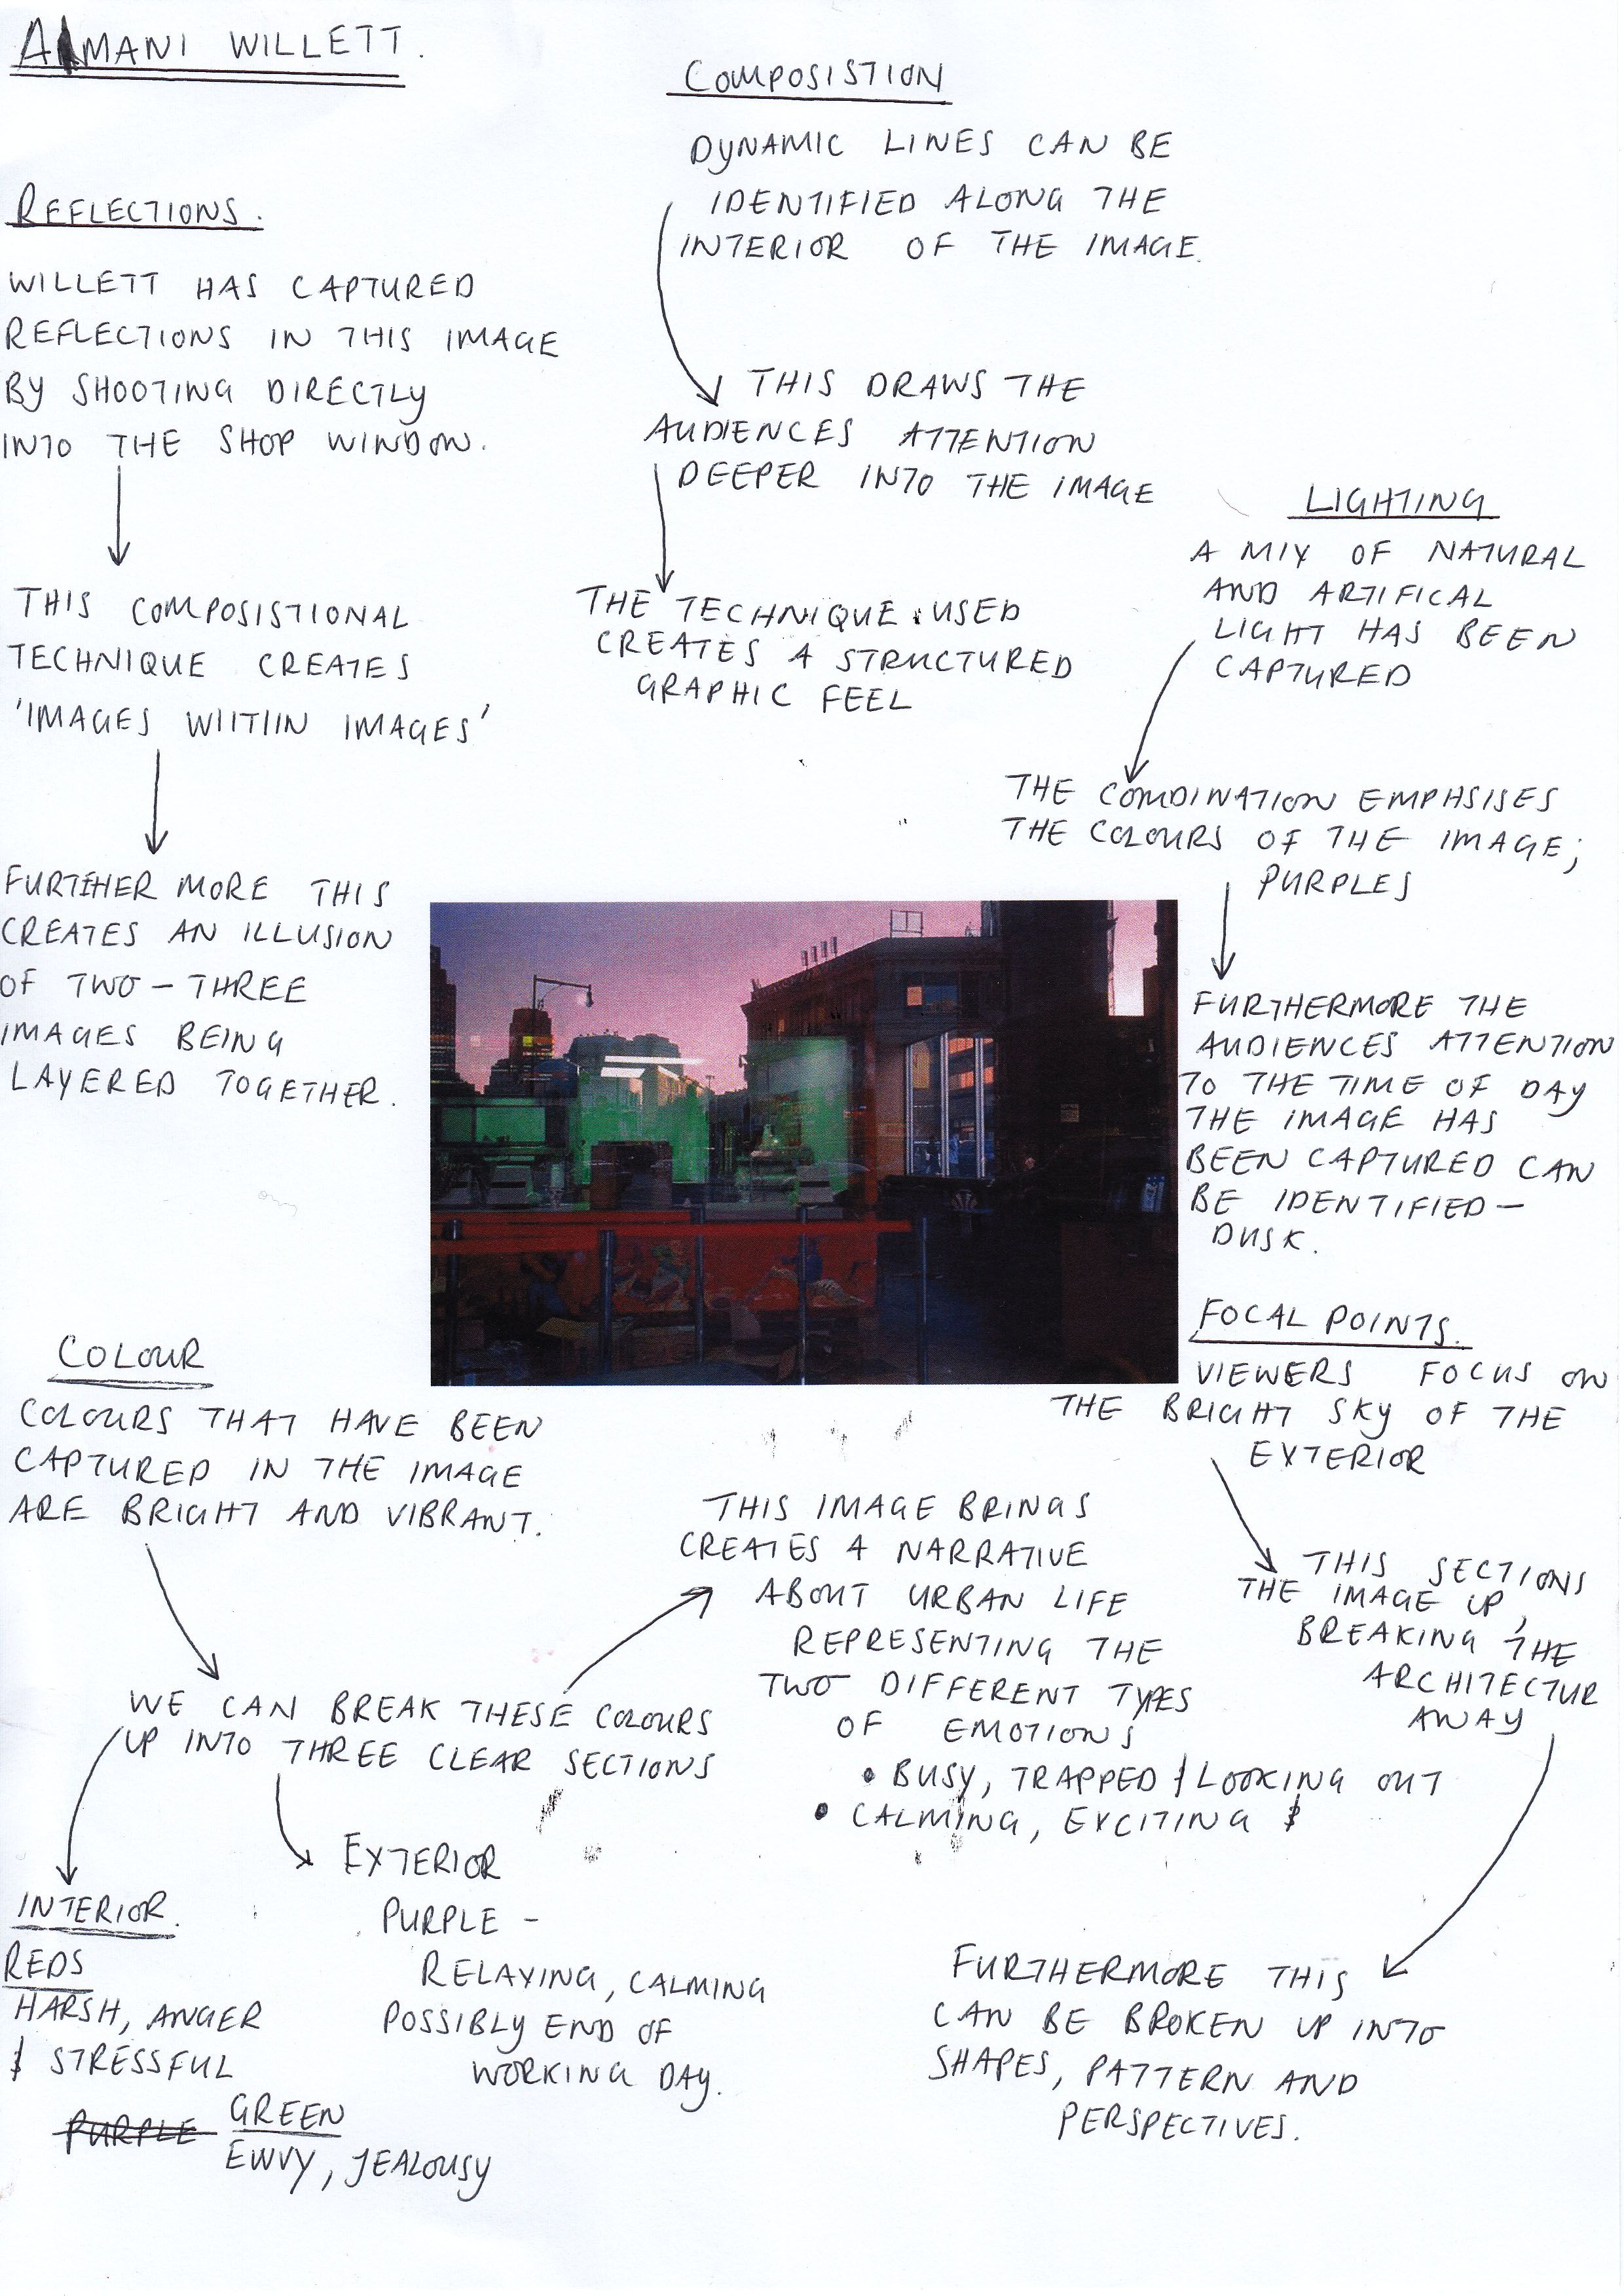 AMANI WILLETT.
REFLECTIONS.
WILLETT HAS CAPTURED
REFLECTIONS IN THIS IMAGE
BY SHOOTING DIRECTLY
INTO THE SHOP WINDOW.
THIS COMPOSISTIONAL
TECHNIQUE CREATES
'IMAGES WIITIIN IMAGES'
FURTEHER MORE THIS
CREATES AN ILLUSION
OF TWO - THREE
IMAGES BEING
LAYERED TOGETHER.
COMPOSISTION
DYNAMIC LINES CAN BE
IDENTIFIED ALONG THE
INTERIOR OF THE IMAGE.
THIS DRAWS THE
AUDIENCES ATTENTION
DEEPER INTO THE IMAGE
THE TECHNIQUE USED
CREATES A STRUCTURED
GRAPHIC FEEL
LIGHTING
A MIX OF NATURAL
AND ARTIFICAL
LIGHT HAS BEEN
CAPTURED
THE COMDINATION EMPHSISES
THE COLOURS OF THE IMAGE;
PURPLES
FURTHERMORE THE
AUDIENCES ATTENTION
TO THE TIME OF DAY
THE IMAGE HAS
BEEN CAPTURED CAN
BE IDENTIFIED -
DUSK.
FOCAL POINTS.
VIEWERS FOCUS ON
THE BRIGHT SKY OF THE
EXTERIOR
THIS SECTIONS
THE IMAGE UP,
BREAKING THE
ARCHITECTUR
AWAY
FURTHERMORE THIS
CAN BE BROKEN UP INTO
SHAPES, PATTERN AND
PERSPECTIVES.
COLOUR
COLOURS THAT HAVE BEEN
CAPTURED IN THE IMAGE
ARE BRIGHT AND VIBRANT.
WE CAN BREAK THESE COLOURS
UP INTO THREE CLEAR SECTIONS
THIS IMAGE BRINGS
CREATES A NARRATIVE
ABOUT URBAN LIFE
REPRESENTING THE
TWO DIFFERENT TYPES
OF EMOTIONS
• BUSY, TRAPPED & LOOKING OUT
• CALMING, EXCITING &
INTERIOR.
REDS
HARSH, ANGER
& STRESSFUL
PURPLE GREEN
ENVY, JEALOUSY
EXTERIOR
PURPLE -
RELAXING, CALMING
POSSIBLY END OF
WORKING DAY.